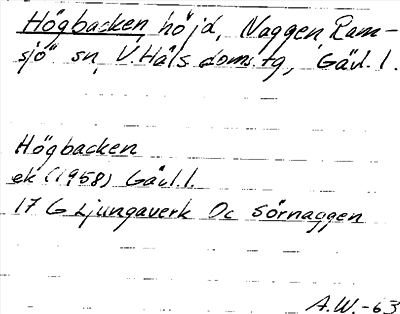 Högbacken, höjd, Naggen, Ram-
sjö sn, V. Häls. doms. tg, Gävl. l.
Högbacken
ek (1958) Gävl. l.
17 G Ljungaverk Oc Sörnaggen
A.W.-63